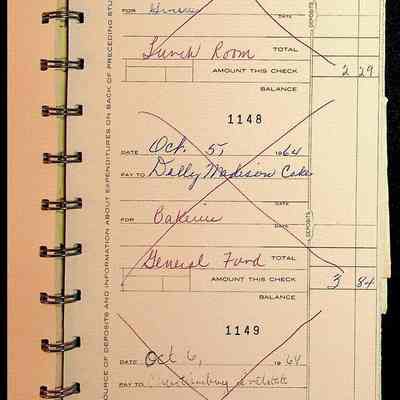 FOR
DATE
Lunch Room TOTAL
AMOUNT THIS CHECK 2 29
BALANCE
1148
DATE Oct. 5, 1964
PAY TO Dolly Madison Cake
DATE
FOR Bakerie
DEPOSITS
General Fund TOTAL
AMOUNT THIS CHECK 3 84
BALANCE
1149
DATE Oct 6, 1964
PAY TO
DEPOSITS
OURCE OF DEPOSITS AND INFORMATION ABOUT EXPENDITURES ON BACK OF PRECEDING STU